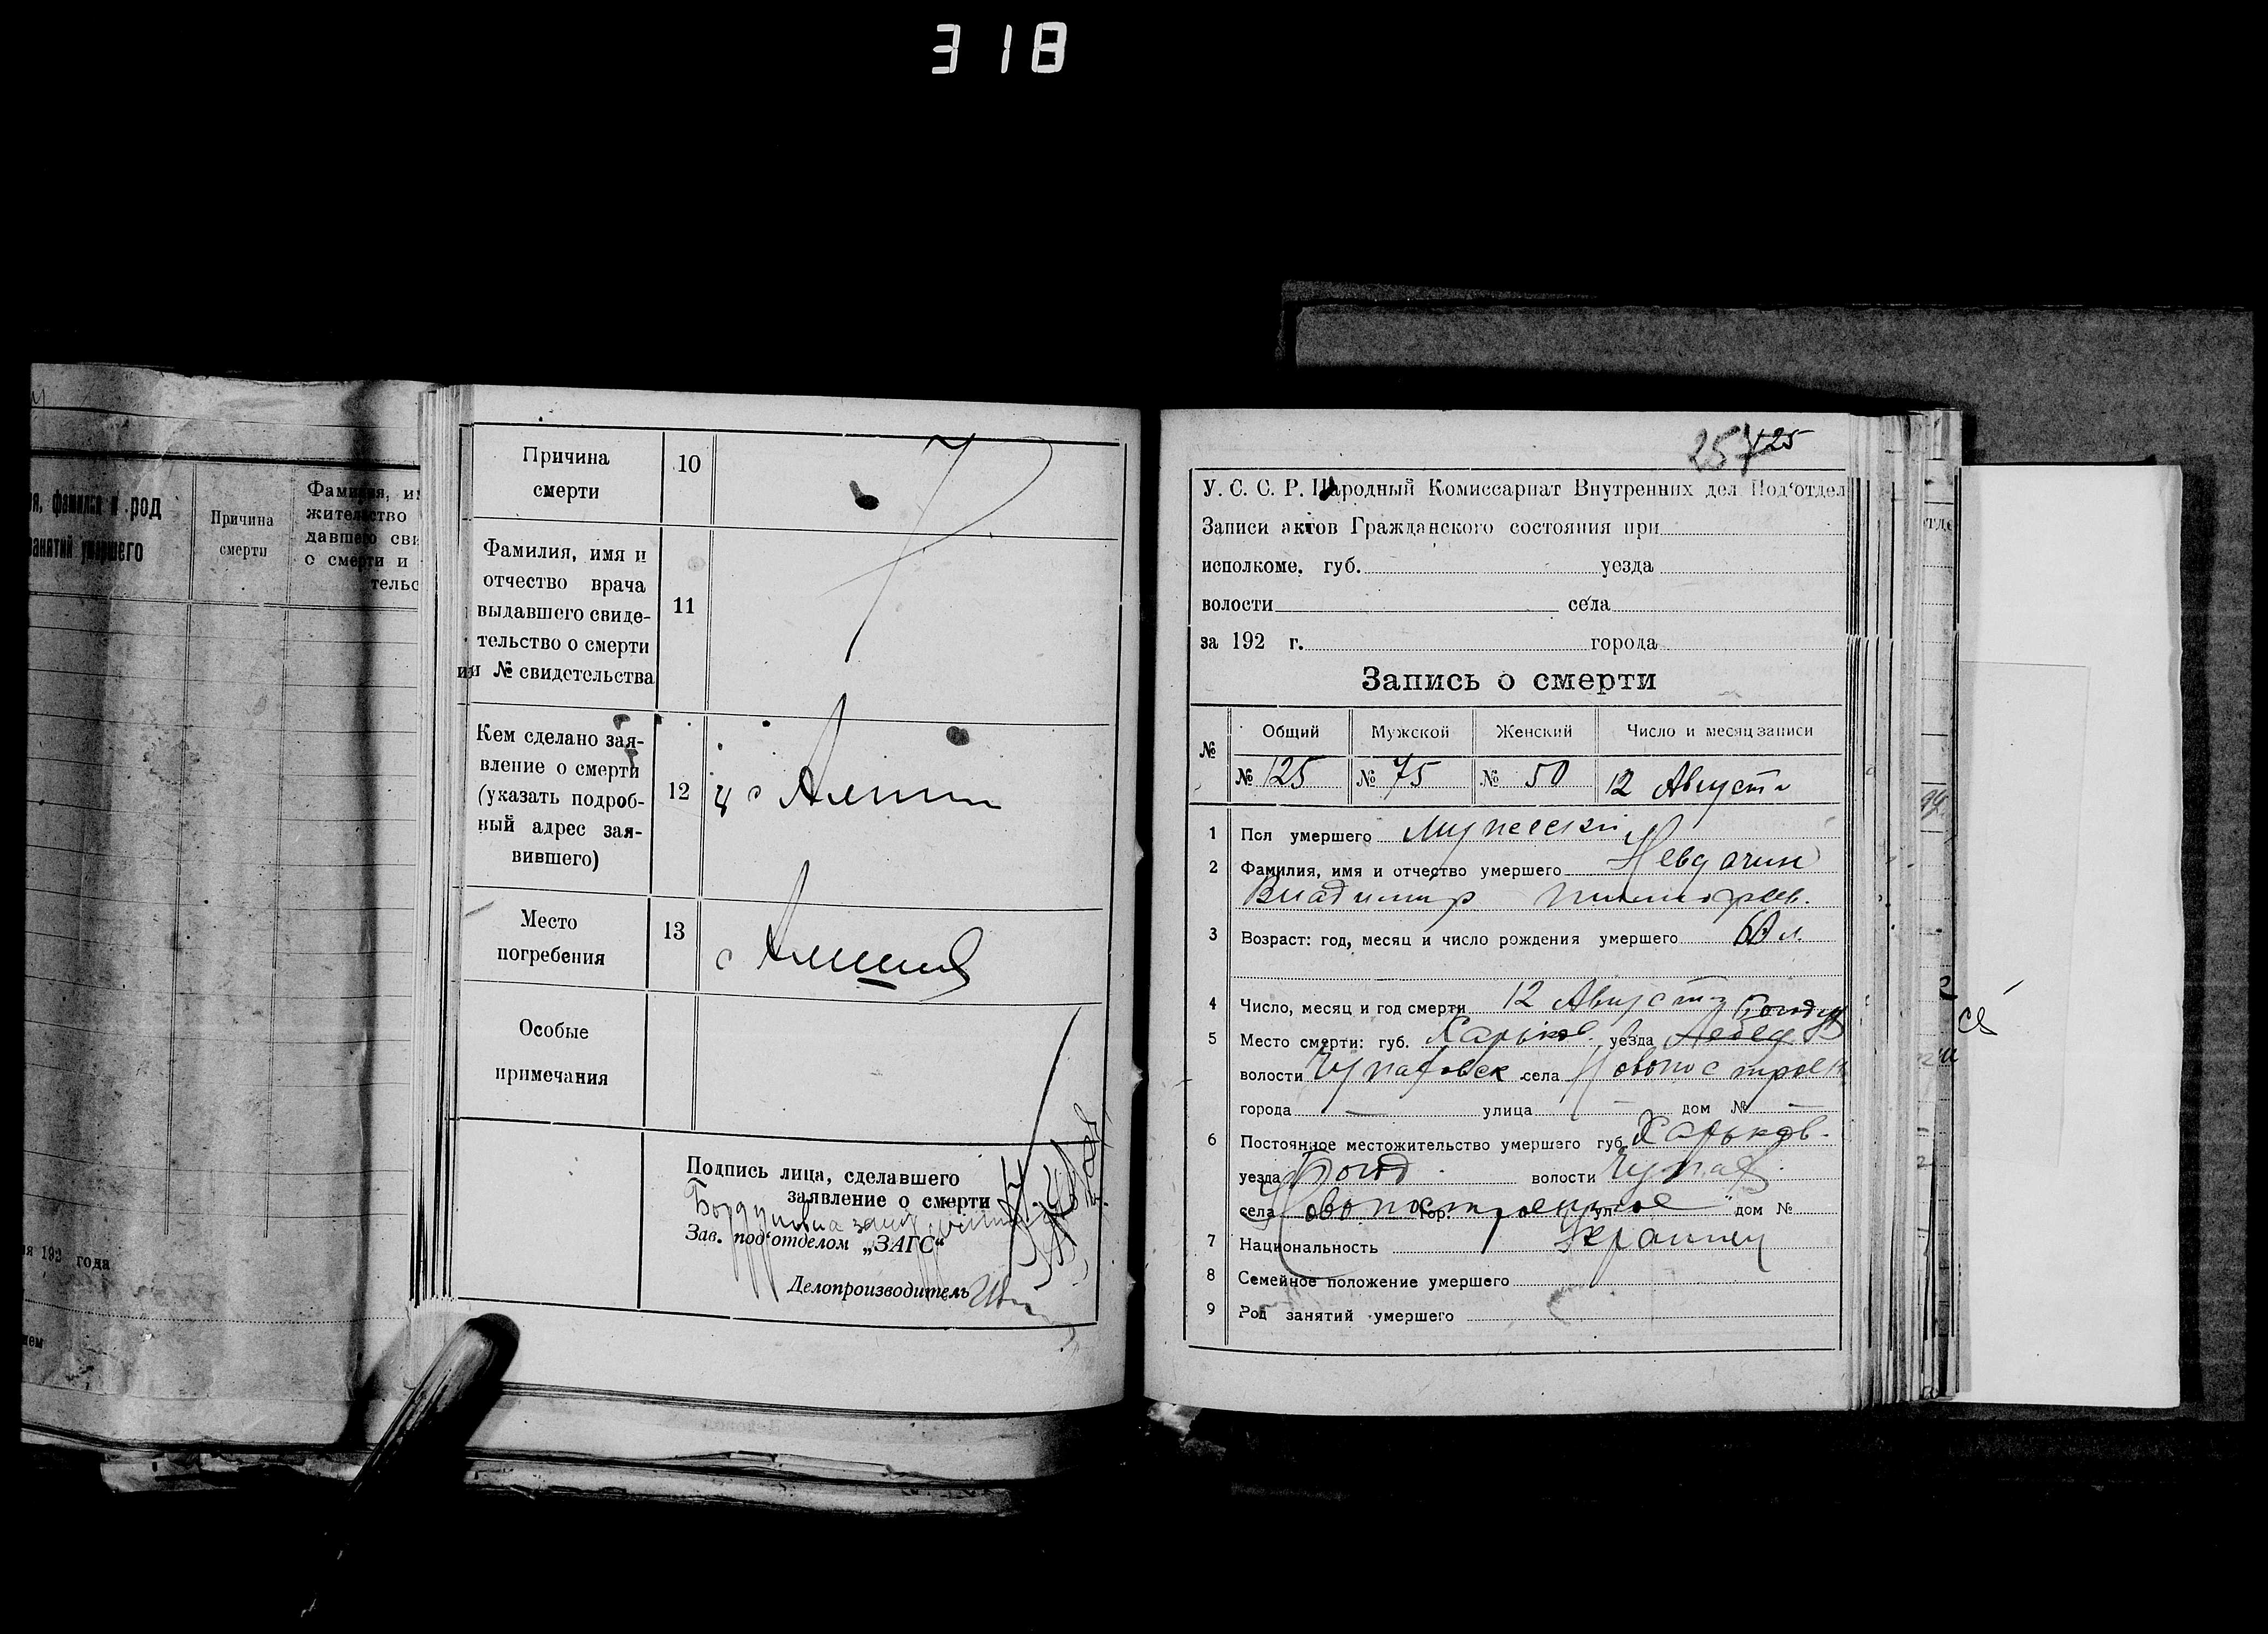 318
я, фамилия и род
занятий умершего
Причина
смерти
Фамилия, и
жительство
давшего сви
о смерти и
тельс
ия 192 года
Причина
смерти
10
Фамилия, имя и
отчество врача
выдавшего свиде-
тельство о смерти
и № свидетельства
11
Кем сделано зая-
вление о смерти
(указать подроб-
ный адрес зая-
вившего)
12
Место
погребения
13
с
Особые
примечания
Подпись лица, сделавшего
заявление о смерти
Зав. под‘отделом „ЗАГС“
Делопроизводитель
257 125
У. С. С. Р. Народный Комиссариат Внутренних дел Под‘отдел
Записи актов Гражданского состояния при
исполкоме. губ. уезда
волости села
за 192 г. города
Запись о смерти
№ Общий Мужской Женский Число и месяц записи
№ 125 № 75 № 50 12 Август
1 Пол умершего Мужеский
2 Фамилия, имя и отчество умершего Невдачин
Владимир
3 Возраст: год, месяц и число рождения умершего 60 л.
4 Число, месяц и год смерти 12 Август
5 Место смерти: губ. Харьков. уезда
волости Чупаховск села Новопостроен
города — улица — дом № —
6 Постоянное местожительство умершего губ. Харьков.
уезда Богод волости Чупах
села Новопостроенное гор. ул. " дом №
7 Национальность Украинец
8 Семейное положение умершего
9 Род занятий умершего